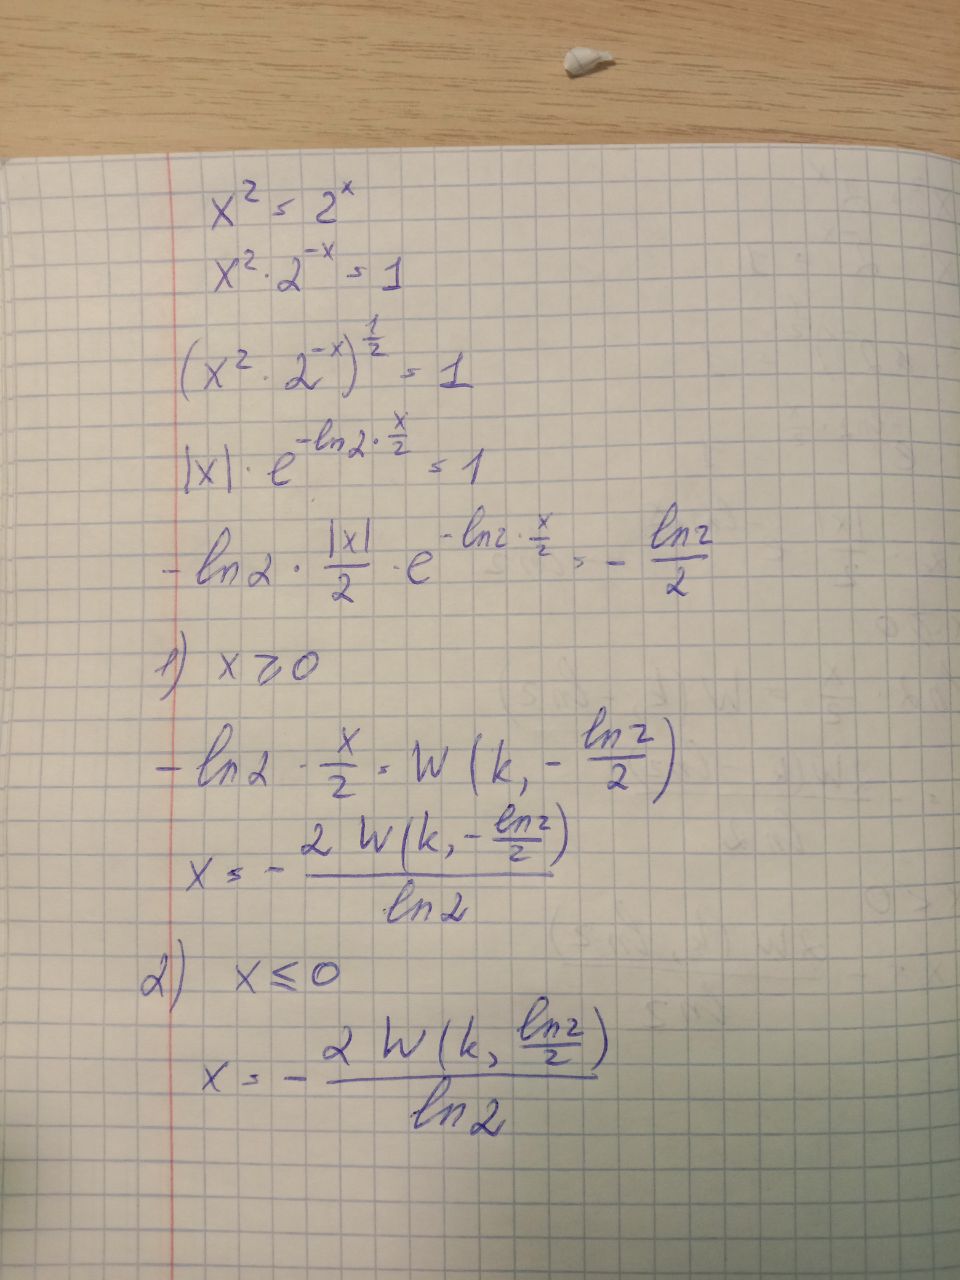 x² = 2ˣ
x² · 2⁻ˣ = 1
(x² · 2⁻ˣ)^(1/2) = 1
|x| · e^(-ln2 · x/2) = 1
-ln2 · |x|/2 · e^(-ln2 · x/2) = - ln2/2
1) x ≥ 0
-ln2 · x/2 = W(k, - ln2/2)
x = - 2 W(k, - ln2/2) / ln2
2) x ≤ 0
x = - 2 W(k, ln2/2) / ln2